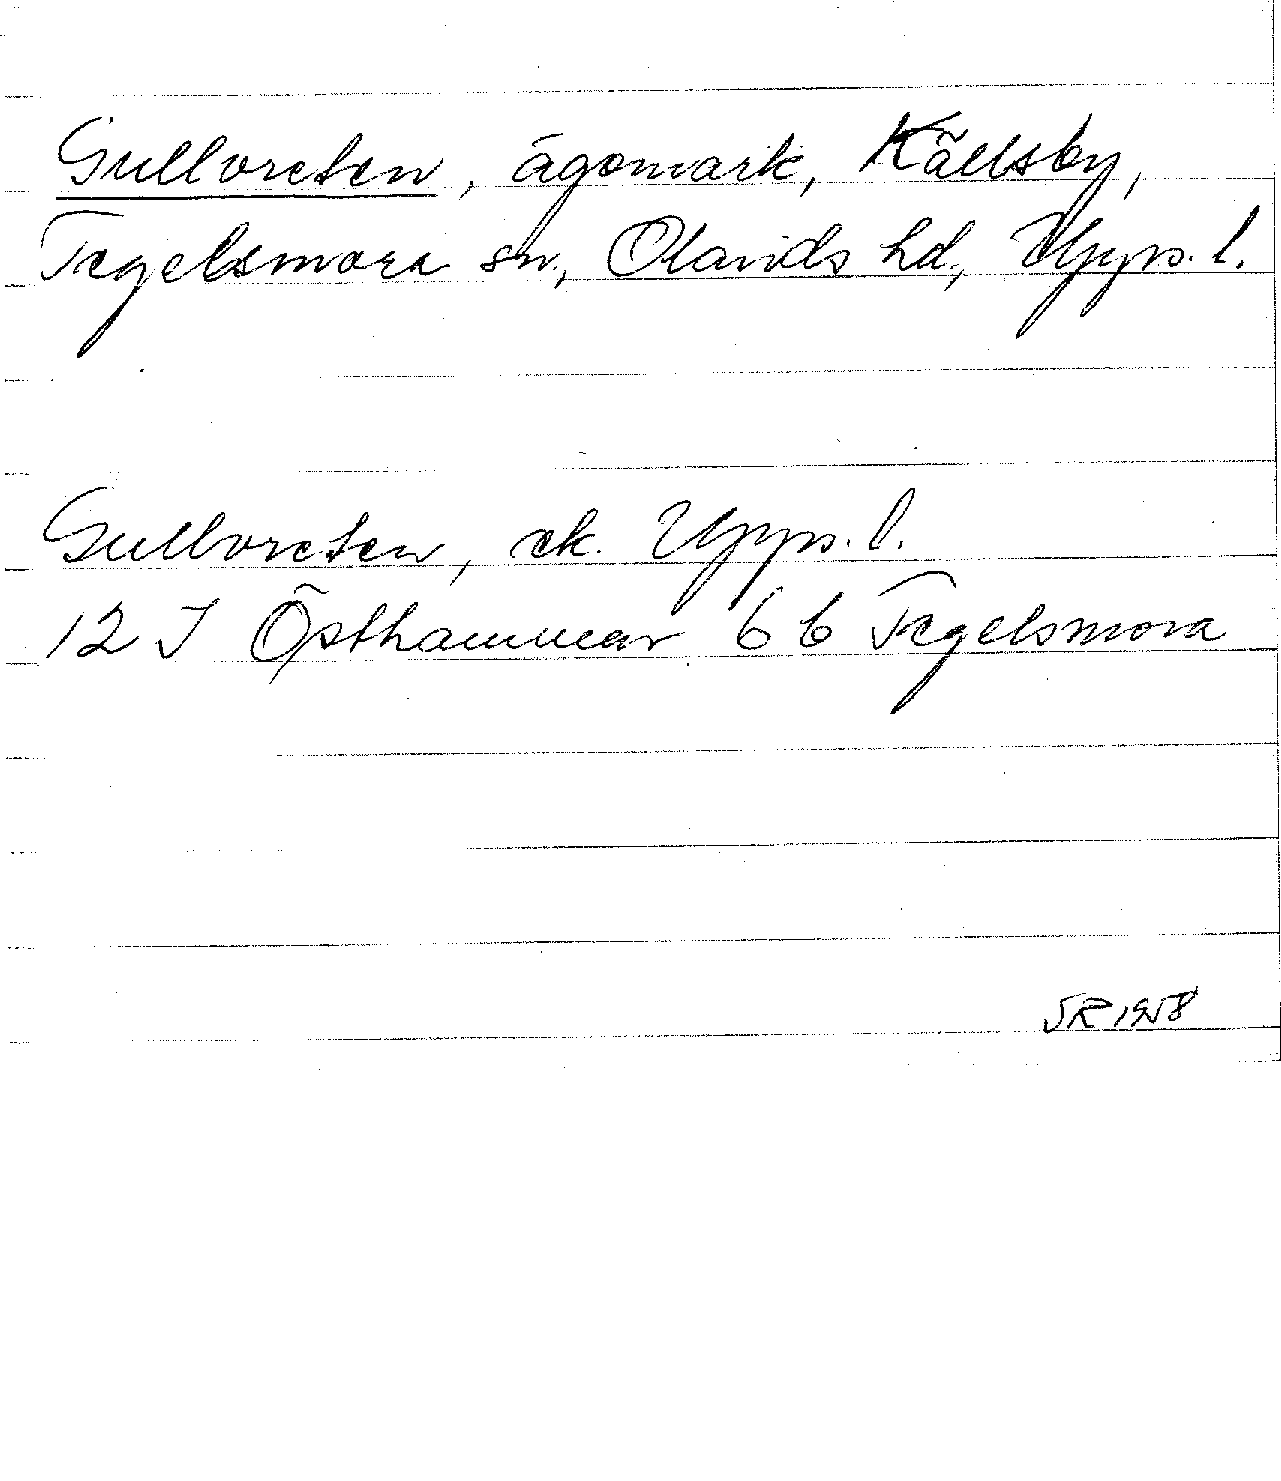 Gullvreten, ägomark, Källsby,
Tegelsmora sn., Olands hd., Upps. l.
Gullvreten, ek. Upps. l.
12 I Östhammar 6 b Tegelsmora
SR 1958